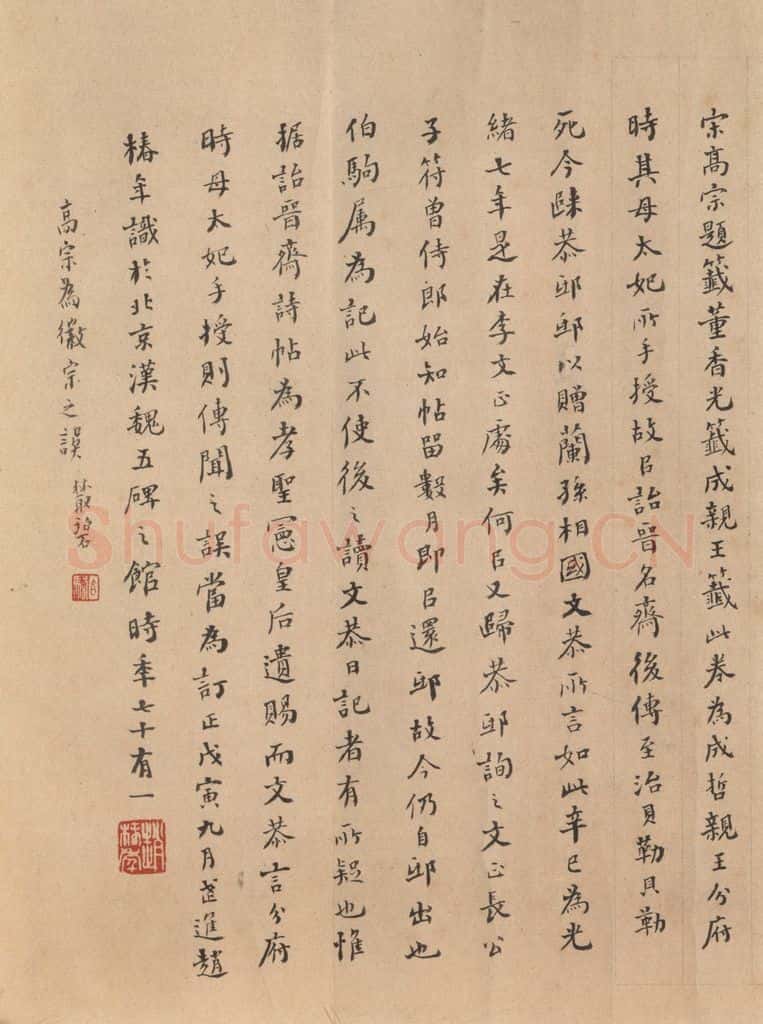 宗高宗題籤董香光籤成親王籤此卷為成哲親王分府
時其母太妃所手授故㠯詒晉名齋後傳至治貝勒貝勒
死今歸恭邸邸以贈蘭孫相國文恭所言如此辛巳為光
緒七年是在李文正處矣何㠯又歸恭邸詢之文正長公
子符曾侍郎始知帖留數月即㠯還邸故今仍自邸出也
伯駒屬為記此不使後之讀文恭日記者有所疑也惟
据詒晉齋詩帖為孝聖憲皇后遺賜而文恭言分府
時母太妃手授則傳聞之誤當為訂正戊寅九月武進趙
椿年識於北京漢魏五碑之館時年七十有一
高宗為徽宗之誤
趙椿年
Shufawang.CN